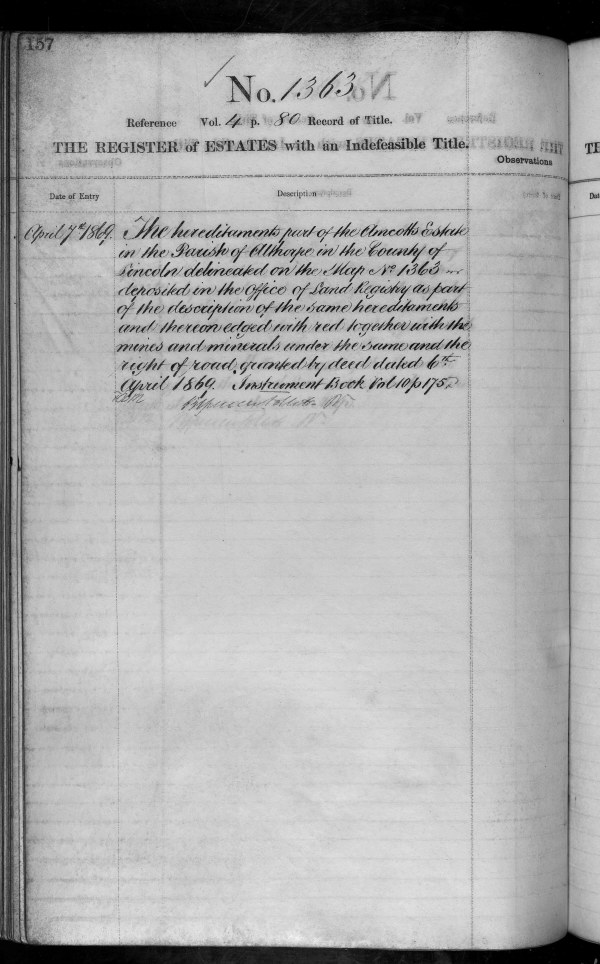 157
No. 1363
Reference Vol. 4 p. 80 Record of Title.
THE REGISTER of ESTATES with an Indefeasible Title.
Observations
Date of Entry
Description
April 7th 1869.
The hereditaments part of the Amcotts Estate
in the Parish of Althorpe in the County of
Lincoln delineated on the Map No 1363
deposited in the Office of Land Registry as part
of the description of the same hereditaments
and thereon edged with red together with the
mines and minerals under the same and the
right of road, granted by deed dated 6th
April 1869. Instrument Book Vol 10 p 175.